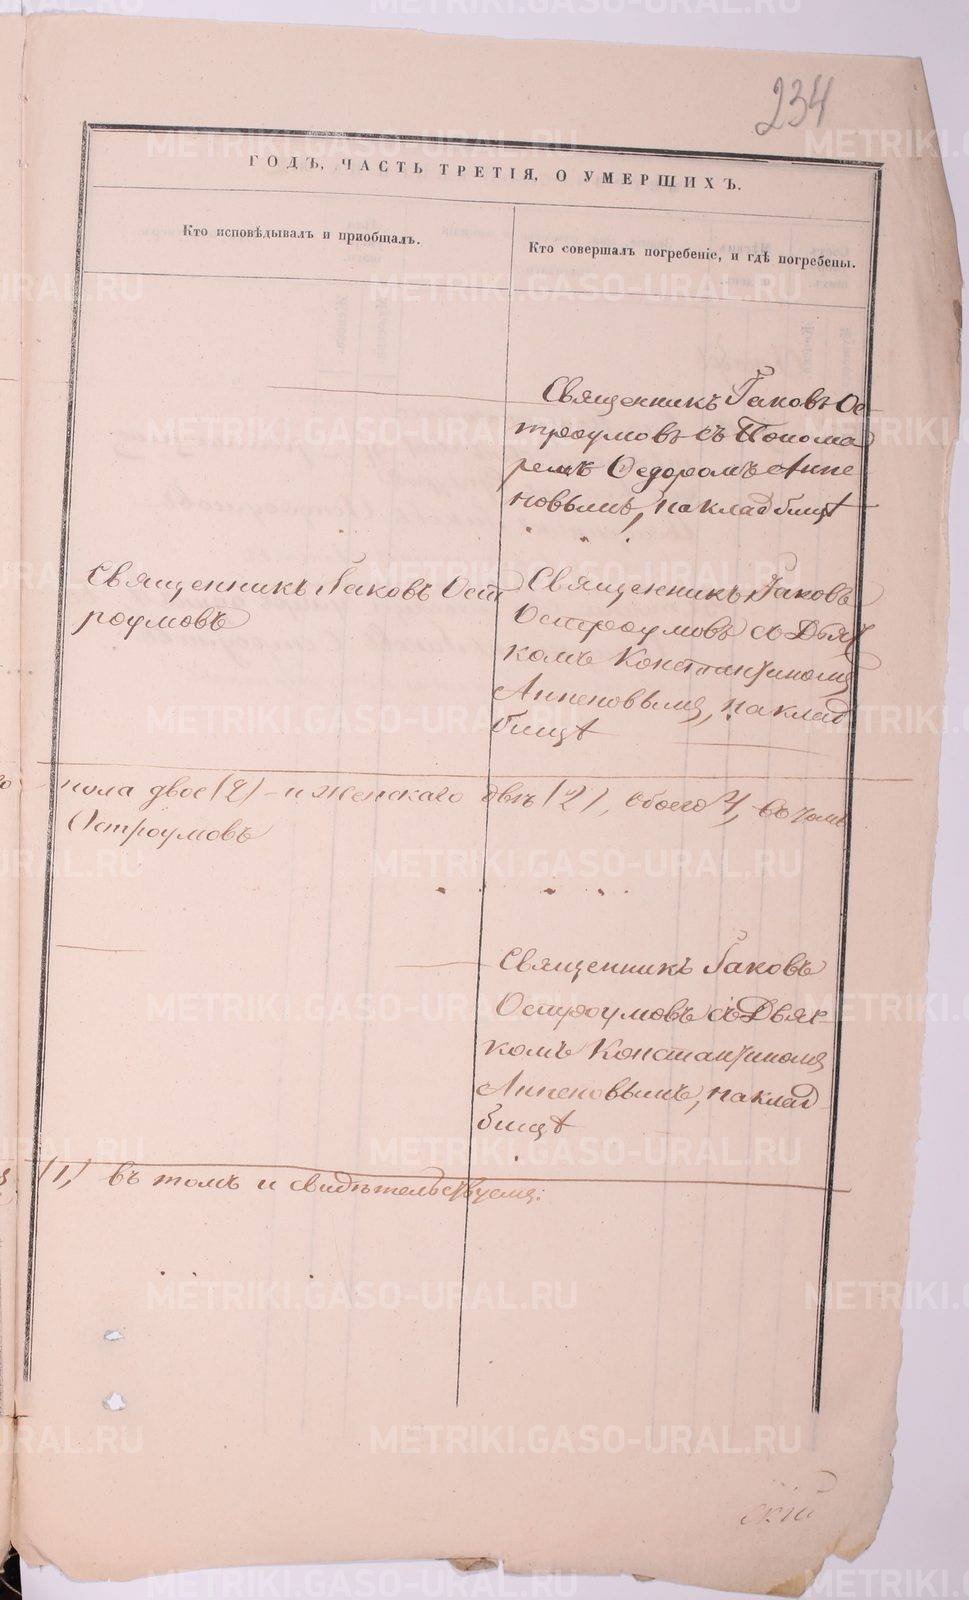 234
ГОДЪ, ЧАСТЬ ТРЕТІЯ, О УМЕРШИХЪ.
Кто исповѣдывалъ и пріобщалъ.
Кто совершалъ погребеніе, и гдѣ погребены.
Священникъ Іаковъ Ос
троумовъ съ Понома
ремъ Ѳедоромъ Аппе
новымъ, на клад бищѣ
Священникъ Іаковъ Ост
роумовъ
Священникъ Іаковъ
Остроумовъ съ Дьяч
комъ Константиномъ
Аппеновымъ, на клад
бищѣ
пола двое (2) - и женскаго двѣ (2), обоего 4, въ чемъ
Остроумовъ
Священникъ Іаковъ
Остроумовъ съ Дьяч
комъ Константиномъ
Аппеновымъ, на клад
бищѣ
(1,) въ томъ и свидѣтельствуемъ:
скій
METRIKI.GASO-URAL.RU